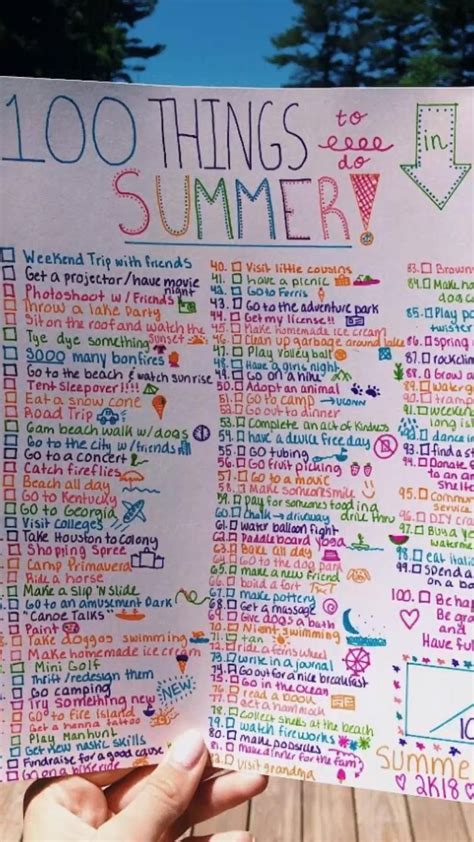 100 THINGS to do in
SUMMER!
Weekend Trip with friends
Get a projector/have movie night
Photoshoot w/ Friends
Throw a lake Party
Sit on the roof and watch the sunset
Tye dye something
3000 many bonfires
Go to the beach & watch sunrise
Tent Sleepover!!!!
Eat a snow cone
Road Trip
Gam beach walk w/dogs
Go to the city w/friends
Go to a concert
Catch fireflies
Beach all day
Go to Kentucky
Go to Georgia
Visit Colleges
Take Houston to Colony
Shopping Spree
Camp Primavera
Ride a horse
Make a slip 'N slide
Go to an amusement Park
"Canoe Talks"
Paint
Take doggos swimming
Make homemade ice cream
Mini Golf
Thrift/redesign them
Go camping
Try something new
NEW!
GO to Fire Island
Get a henna tattoo
Play Manhunt
Get new nastic skills
Fundraise for a good cause
Go on a bike ride
40. Visit little cousins
41. have a picnic
42. Go to Ferris
43. Go to the adventure park
44. Get my license!!
45. Make homemade ice cream
46. Clean up garbage around lake
47. Play Volley ball
48. Have a girls night
49. Go on a hike
50. Adopt an animal
51. Go to camp → UCONN
52. Go out to dinner
53. Complete an act of kindness
54. have a device free day
55. Go tubing
56. Go fruit picking
57. Go to a movie
58. Make someone smile
59. Pay for someones food in a drive thru
60. Chalk → driveway
61. water balloon fight
62. Paddle board yoga
63. Bake all day
64. Go to the dog park
65. make a new friend
66. build a fort
67. make pottery
68. Get a massage
69. Give dogs a bath
70. Night swimming
71. tan
72. ride a ferris wheel
73. write in a journal
74. Go out for a nice breakfast
75. Go in the Ocean
76. read a book
77. get a hammock
78. collect shells at the beach
79. watch fireworks
80. make popsicles
81. make dinner for the fam
82. visit grandma
83. Brown
84. Make ho
dog
85. Play po
twister
86. spring
87. rockclim
88. Grow a
89. water
90. tramp
91. weeken
long is
92. dance
93. find a s
94. Donate
to an an
shelte
95. Comm
service
96. DIY
97. Buy a
waterm
98. eat Itali
99. spend a
on a bo
100. Be ha
Be gra
and
Have ful
10
Summe
2K18